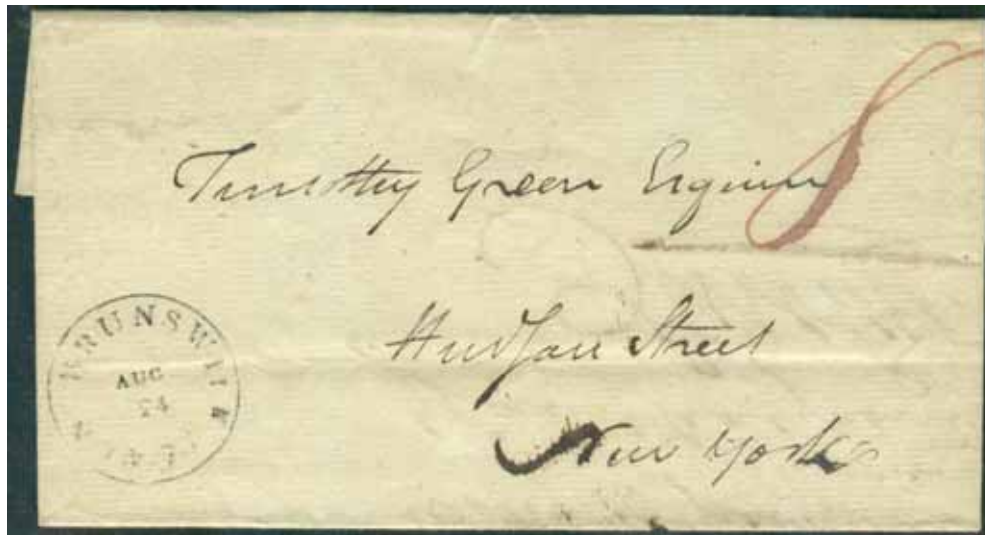 8
Timothy Green Esquire
Hudson Street
New York
BRUNSWICK
AUG
24